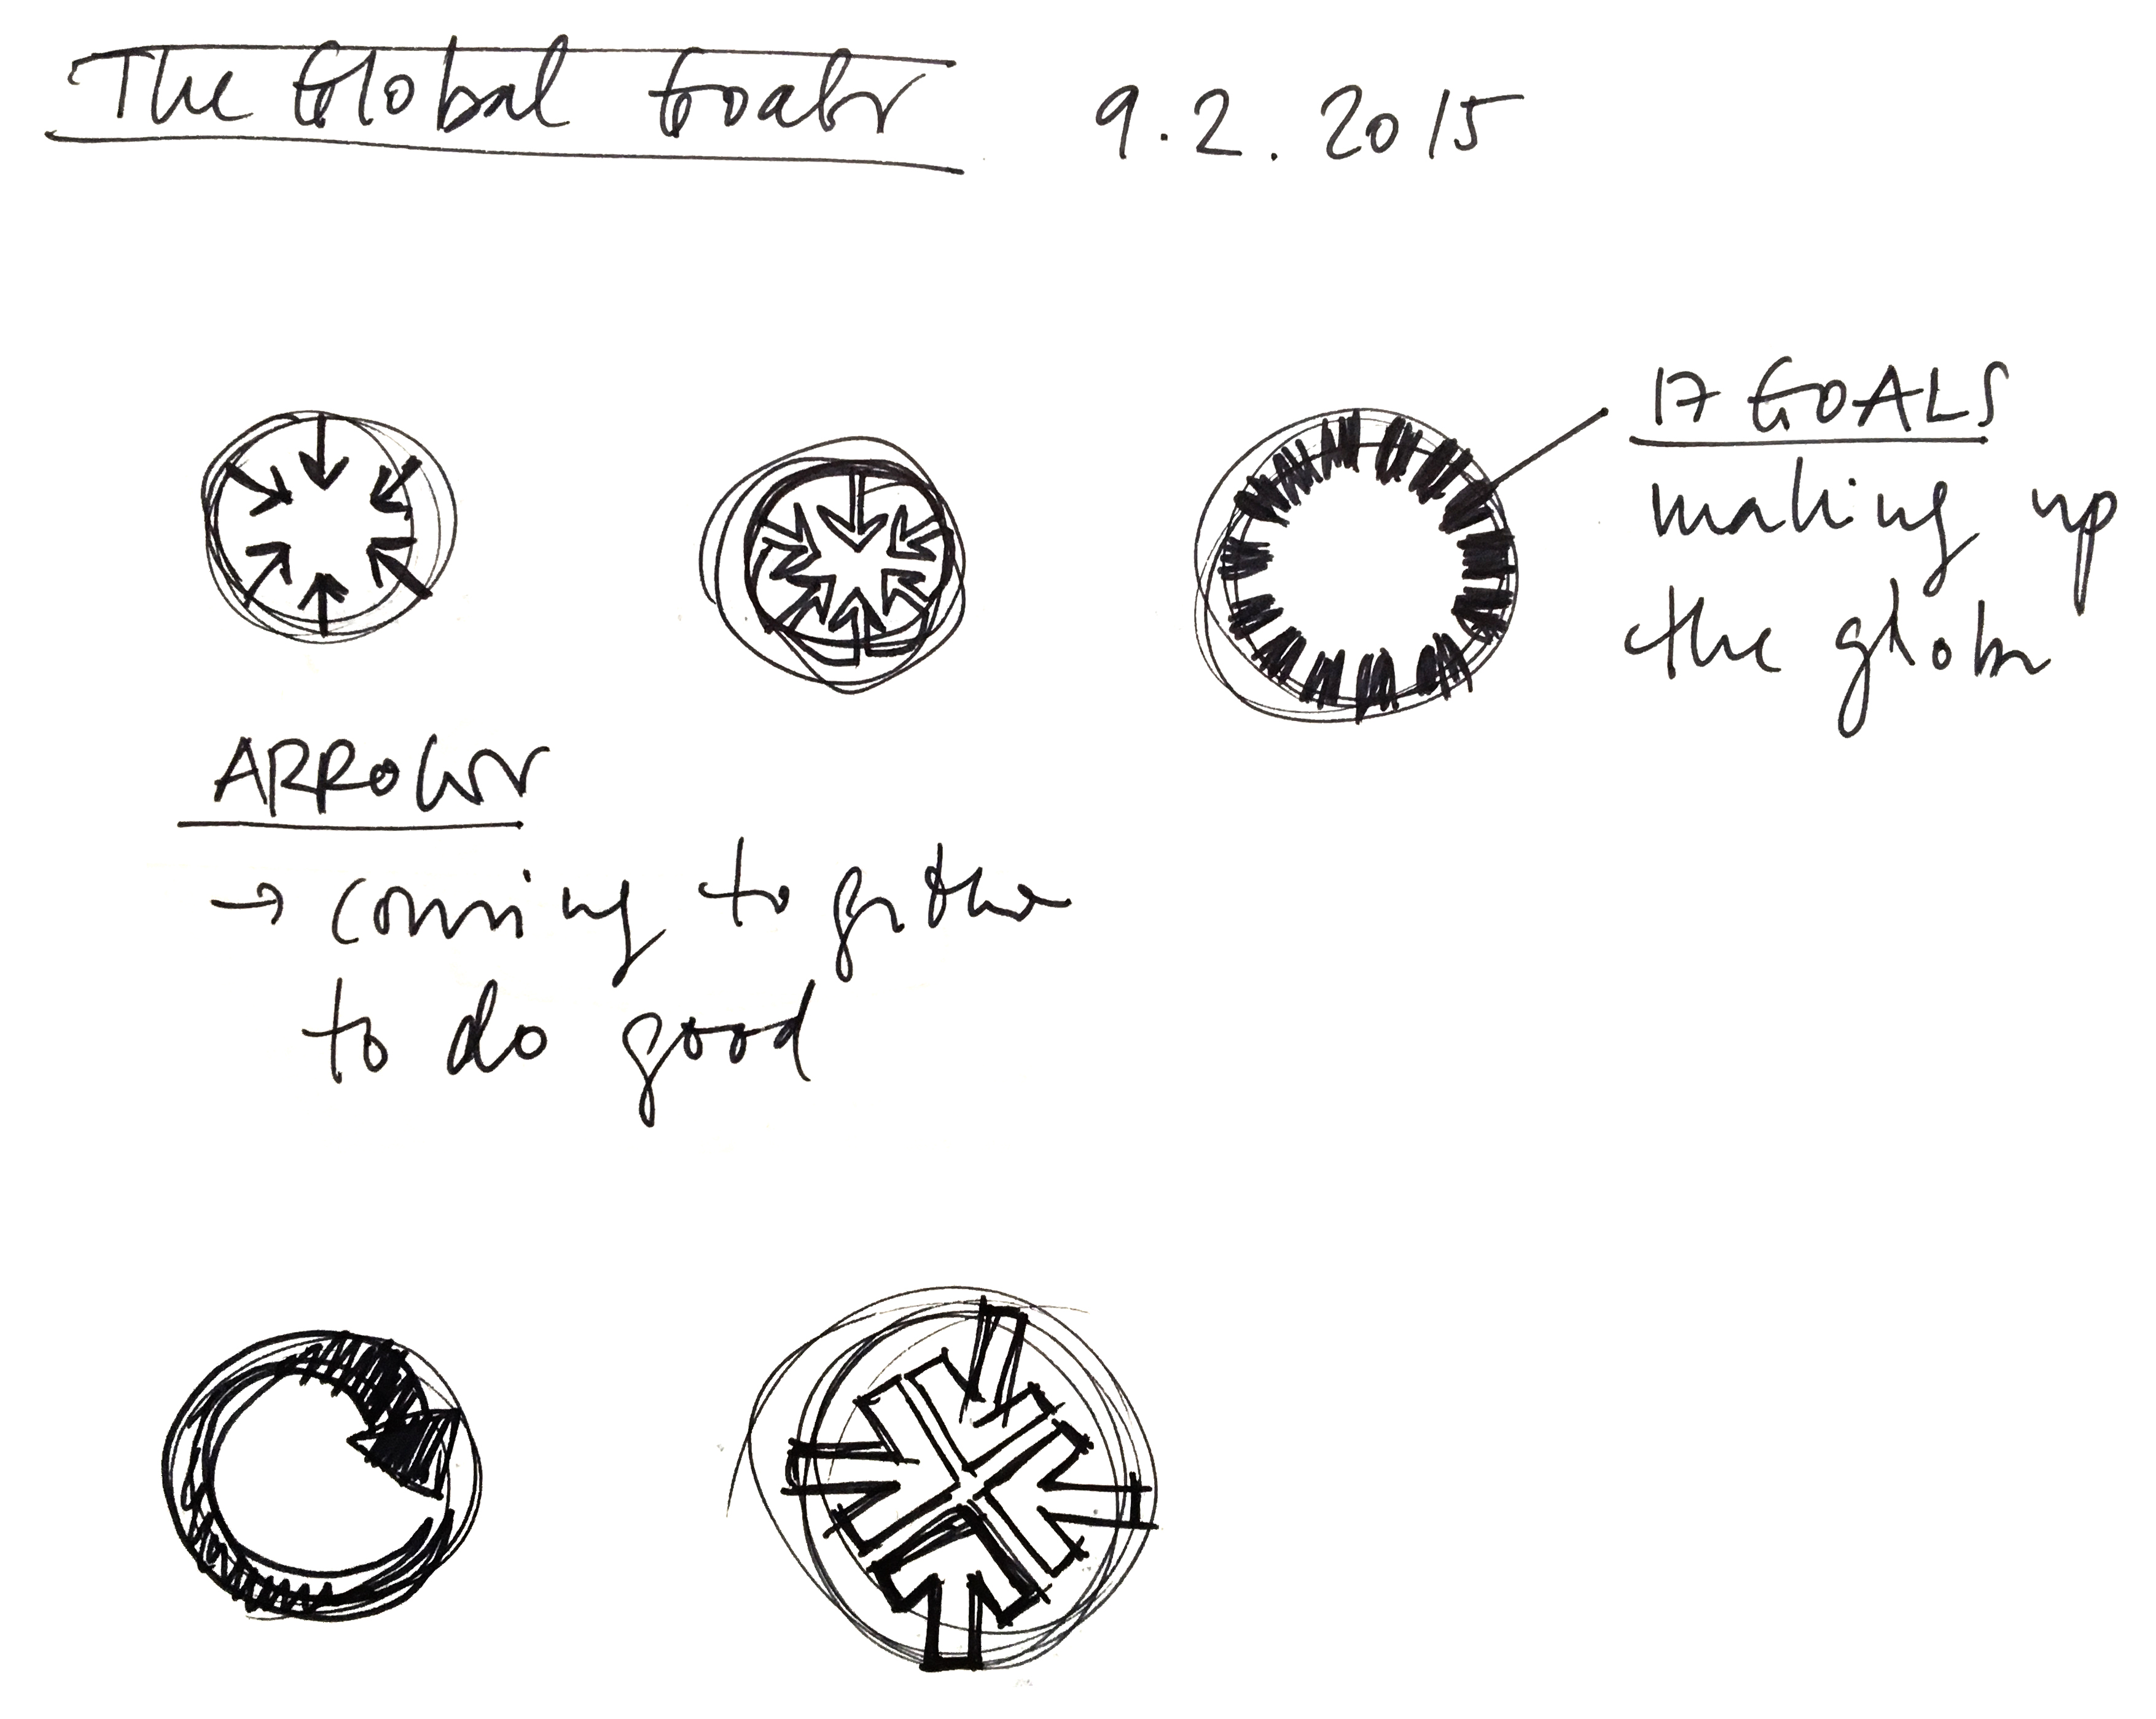 The Global Goals 9.2.2015
17 GOALS
making up
the globe
ARROWS
→ coming together
to do good